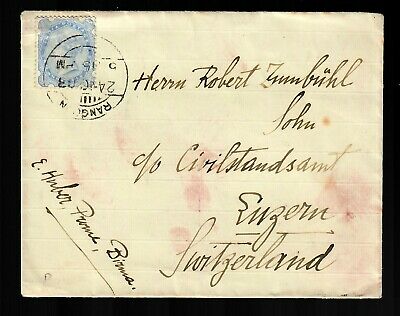 Herrn Robert Zumbühl
Sohn
c/o Civilstandsamt
Luzern
Switzerland
E. Huber, Prome, Birma.